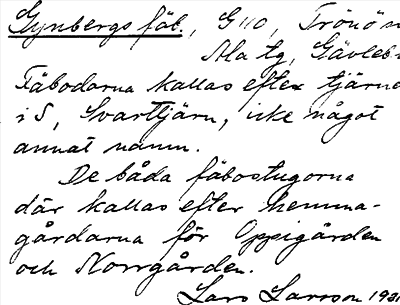 Gynbergs fäb., G110, Trönö s
Ala tg, Gävleb
Fäbodarna kallas efter tjärne
i S, Svarttjärn, icke något
annat namn.
De båda fäbostugorna
där kallas efter hemma-
gårdarna för Oppigården
och Norrgården.
Lars Larsson